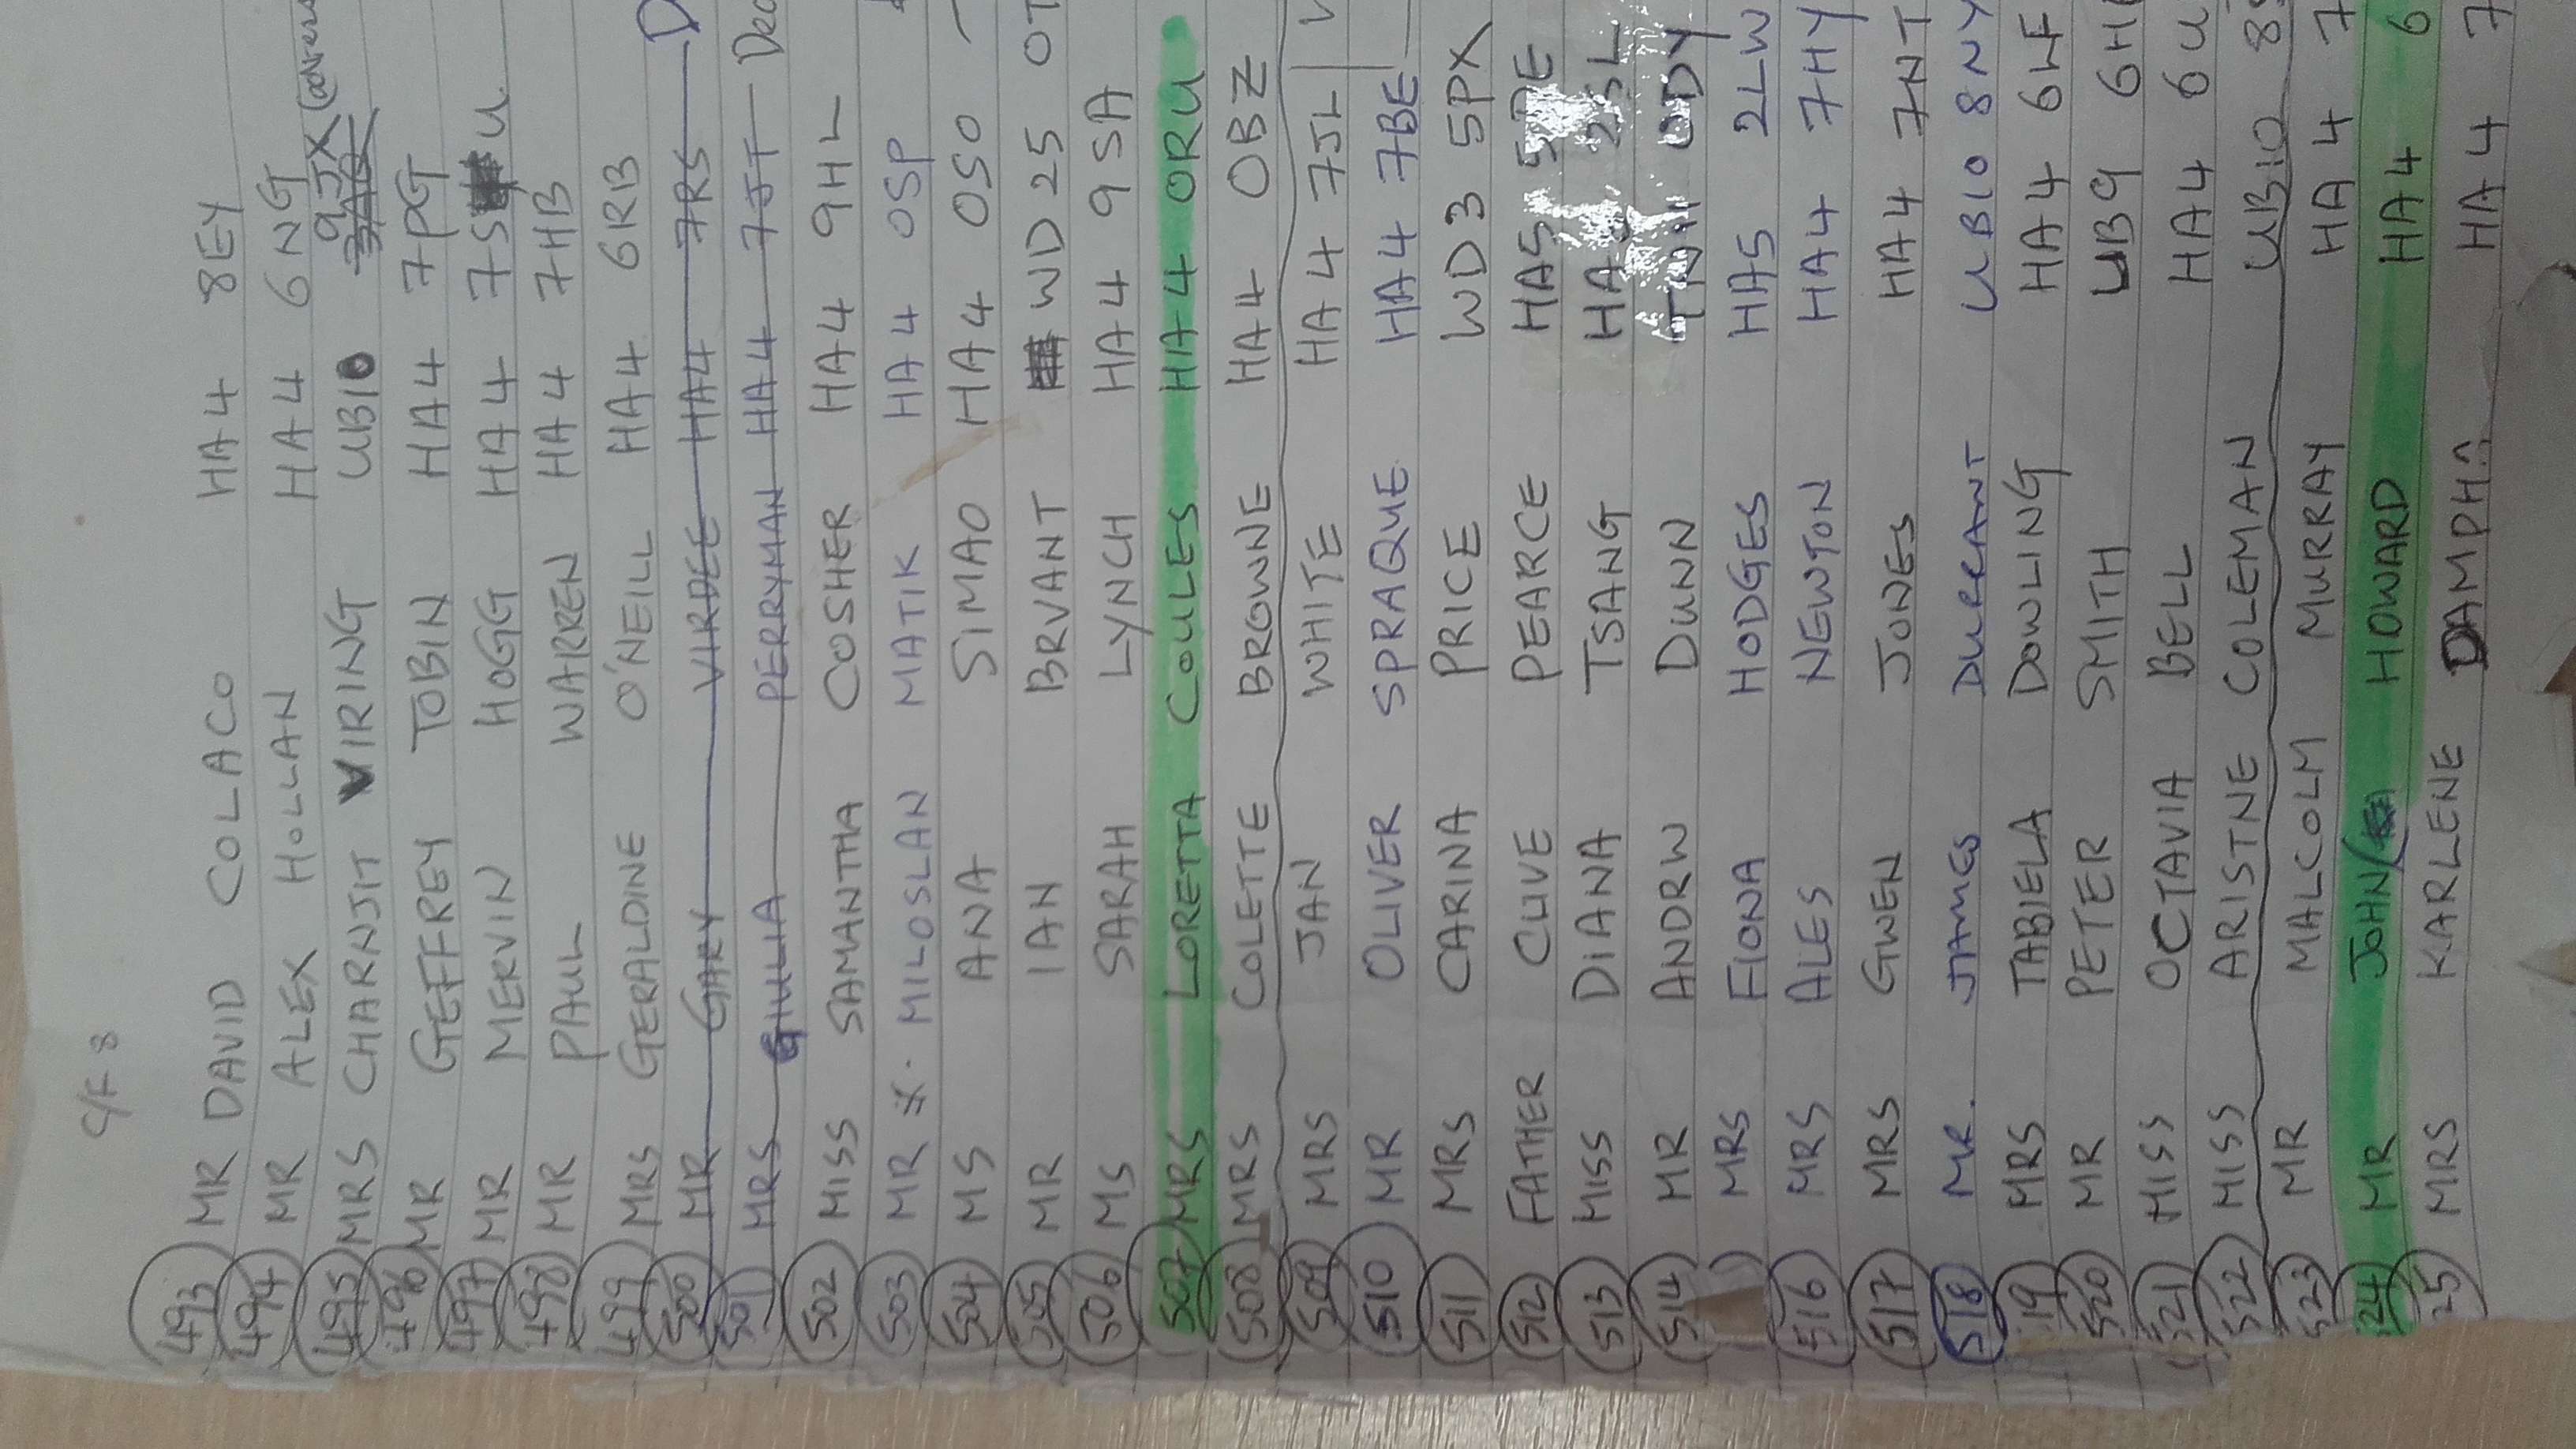 C/F 8
493 MR DAVID COLACO HA4 8EY
494 MR ALEX HOLLAN HA4 6NG
9JX
495 MRS CHARNJIT VIRING UB10 3AQ
496 MR GEFFREY TOBIN HA4 7PG
497 MR MERVIN HOGG HA4 7S U
498 MR PAUL WARREN HA4 7HB
499 MRS GERALDINE O'NEILL HA4 6RB
500 MR GARY VIRDEE HA4 7RS D
501 MRS GIULIA PERRYMAN HA4 7JT Dec
502 MISS SAMANTHA COSHER HA4 9HL
503 MR MILOSLAN MATIK HA4 0SP
504 MS ANA SIMAO HA4 0SO
505 MR IAN BRVANT WD25 0T
506 MS SARAH LYNCH HA4 9SA
507 MRS LORETTA COULES HA4 0RU
508 MRS COLETTE BROWNE HA4 0BZ
509 MRS JAN WHITE HA4 7JL
510 MR OLIVER SPRAQUE HA4 7BE
511 MRS CARINA PRICE WD3 5PX
512 FATHER CLIVE PEARCE HA5
513 MISS DIANA TSANG 2SL
514 MR ANDRW DUNN TN11 0DY
MRS FIONA HODGES HA5 2LW
516 MRS ALES NEWTON HA4 7HY
517 MRS GWEN JONES HA4 7NT
518 MR. JAMES DURRANT UB10 8NY
19 MRS TABIELA DOWLING HA4 6LF
520 MR PETER SMITH UB9 6H
521 MISS OCTAVIA BELL HA4 6U
522 MISS ARISTNE COLEMAN UB10 8
523 MR MALCOLM MURRAY HA4 7
24 MR JOHN HOWARD HA4 6
25 MRS KARLENE HA4 7